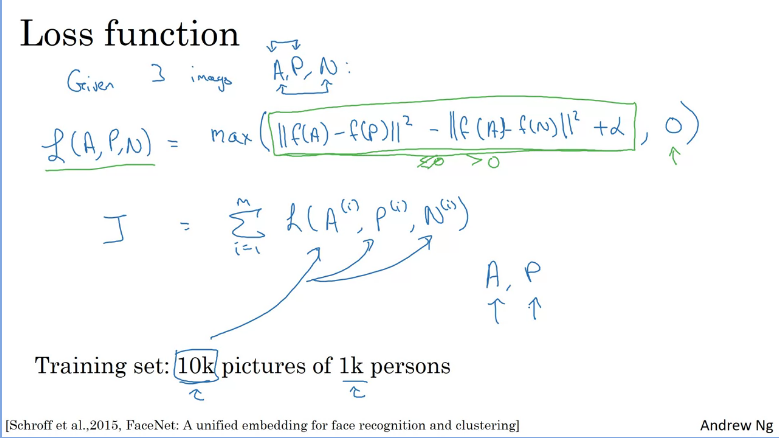 Loss function
Given 3 images A, P, N:
ℒ(A, P, N) = max(||f(A) - f(P)||² - ||f(A) - f(N)||² + α, 0)
≤0 >0
J = Σᵢ₌₁ᵐ ℒ(A⁽ⁱ⁾, P⁽ⁱ⁾, N⁽ⁱ⁾)
A, P
Training set: 10k pictures of 1k persons
[Schroff et al.,2015, FaceNet: A unified embedding for face recognition and clustering] Andrew Ng